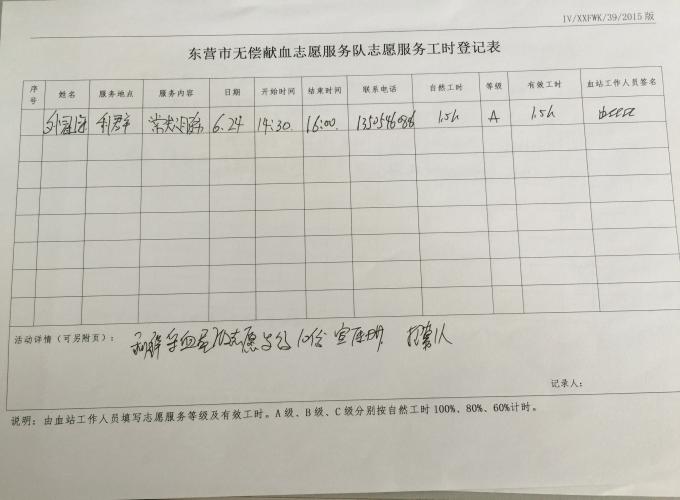 IV/XXFWK/39/2015 版
东营市无偿献血志愿服务队志愿服务工时登记表
序号 姓名 服务地点 服务内容 日期 开始时间 结束时间 联系电话 自然工时 等级 有效工时 血站工作人员签名
利群 6.24 14:30 16:00 1.5h A 1.5h
活动详情（可另附页）：
记录人：
说明：由血站工作人员填写志愿服务等级及有效工时。A 级、B 级、C 级分别按自然工时 100%、80%、60%计时。